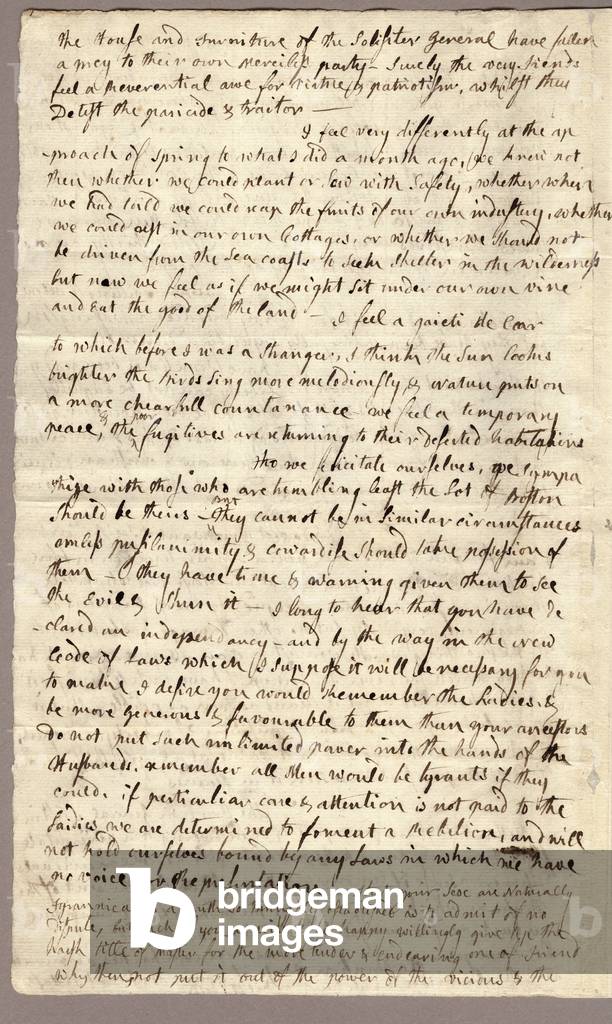 the House and Furniture of the Solisiter General have fallen
a prey to their own merciless party — Surely the very Fiends
feel a Reverential awe for virtue & patriotism, whilst they
Detest the paricide & traitor —
I feel very differently at the ap
proach of Spring to what I did a month ago, we knew not
then whether we could plant or Sow with Safety, whether when
we had toild we could reap the fruits of our own industery, whether
we could rest in our own Cottages, or whether we Should not
be driven from the Sea coasts to Seek Shelter in the wilderness
but now we feel as if we might Sit under our own vine
and eat the good of the land — I feel a gaieti de Coar
to which before I was a Stranger, I think the Sun looks
brighter the Birds Sing more melodiously & Nature puts on
a more chearfull countanance we feel a temporary
peace, & the poor fugitives are returning to their Deserted habitations
Tho we felicitate ourselves, we Sympa
thize with those who are trembling least the Lot of Boston
Should be theirs — But they cannot be in Similar circumstances
unless pusilanimity & cowardise Should take possession of
them — They have time & warning given them to See
the Evil & Shun it — I long to hear that you have de
clared an independancy — and by the way in the new
Code of Laws which I suppose it will be necessary for you
to make I desire you would Remember the Ladies, &
be more generous & favourable to them than your ancestors
do not put such unlimited power into the hands of the
Husbands. remember all Men would be tyrants if they
could. if perticuliar care & attention is not paid to the
Laidies we are determined to foment a Rebelion, and will
not hold ourselves bound by any Laws in which we have
no voice, or Representation
your Sex are Naturally
Tyrannical is a Truth so thoroughly established as to admit of no
dispute, but such of you as wish to be happy willingly give up the
harsh title of Master for the more tender & endearing one of Friend
why then, not put it out of the power of the vicious & the
b
bridgeman
images